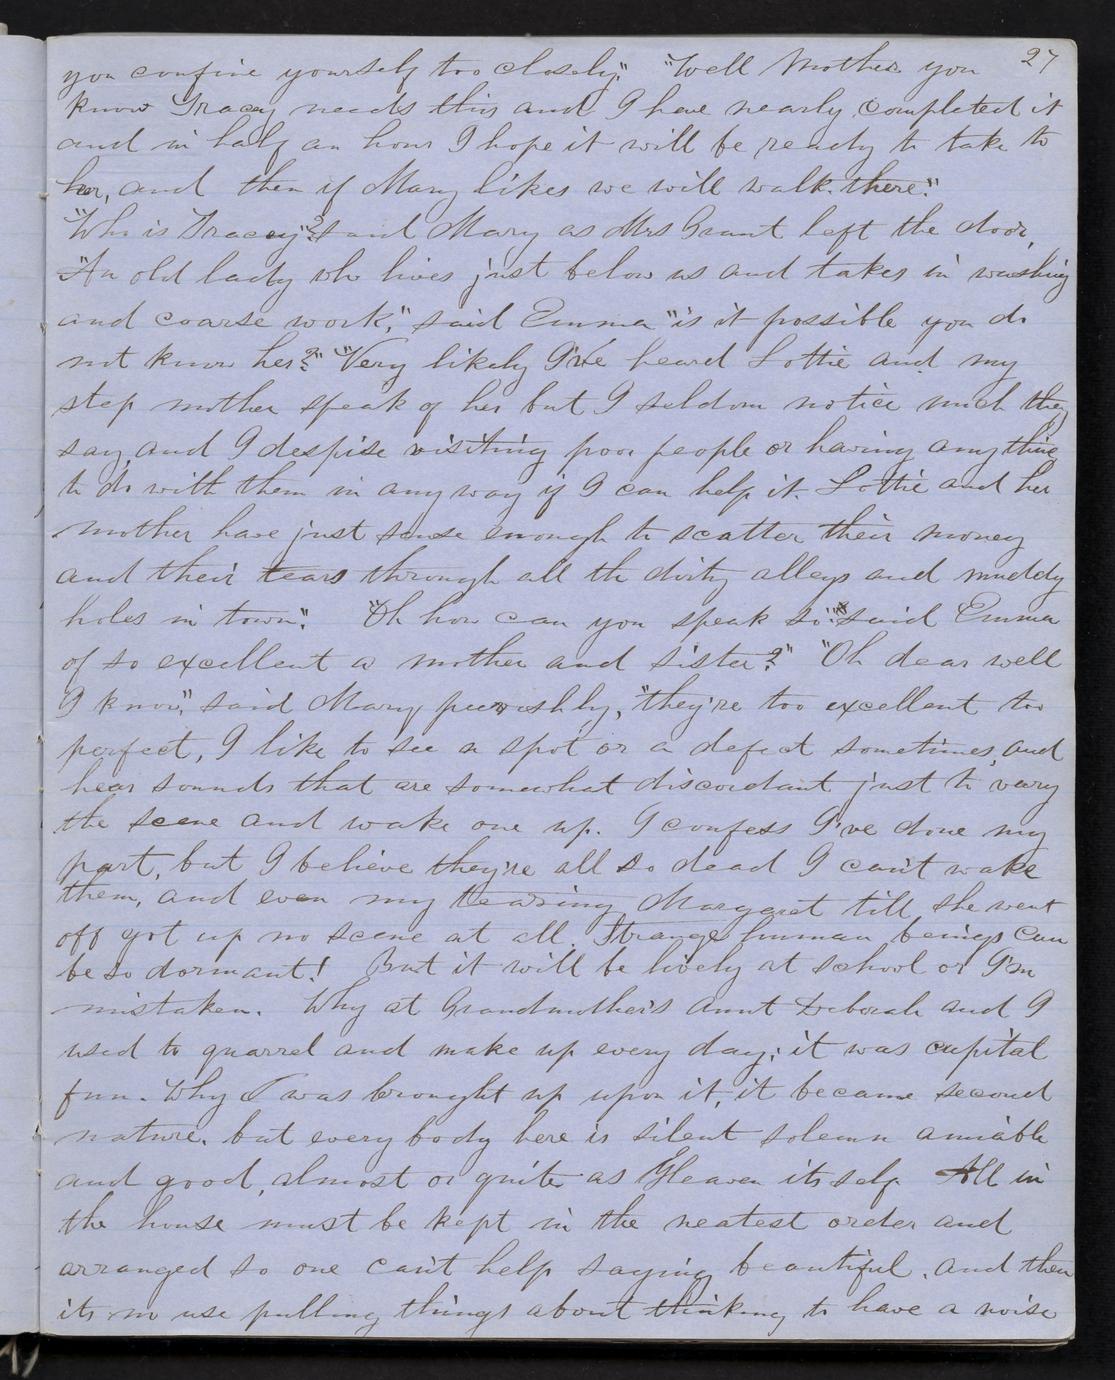 27
you confine yourself too closely." "Well Mother you
know Tracey needs this and I have nearly completed it
and in half an hour I hope it will be ready to take to
her, and then if Mary likes we will walk there."
"Who is Tracey"? said Mary as Mrs Grant left the door,
"An old lady who lives just below us and takes in washing
and coarse work," said Emma "is it possible you do
not know her?" "Very likely I've heard Lottie and my
step mother speak of her but I seldom notice much they
say, and I despise visiting poor people or having any thing
to do with them in any way if I can help it. Lottie and her
mother have just sense enough to scatter their money
and their tears through all the dirty alleys and muddy
holes in town." "Oh how can you speak so" said Emma
of so excellent a mother and sister?" "Oh dear well
I know," said Mary peevishly, "they're too excellent too
perfect, I like to see a spot or a defect sometimes, and
hear sounds that are somewhat discordant just to vary
the scene and wake one up. I confess I've done my
part, but I believe they're all so dead I can't wake
them, and even my teasing Margaret till she went
off got up no scene at all. Strange human beings can
be so dormant! But it will be lively at school or I'm
mistaken. Why at Grandmother's Aunt Deborah and I
used to quarrel and make up every day; it was capital
fun. Why I was brought up upon it, it became second
nature. but every body here is silent solemn amiable
and good, almost or quite as Heaven its self. All in
the house must be kept in the neatest order and
arranged so one can't help saying beautiful. and then
its no use pulling things about thinking to have a noise